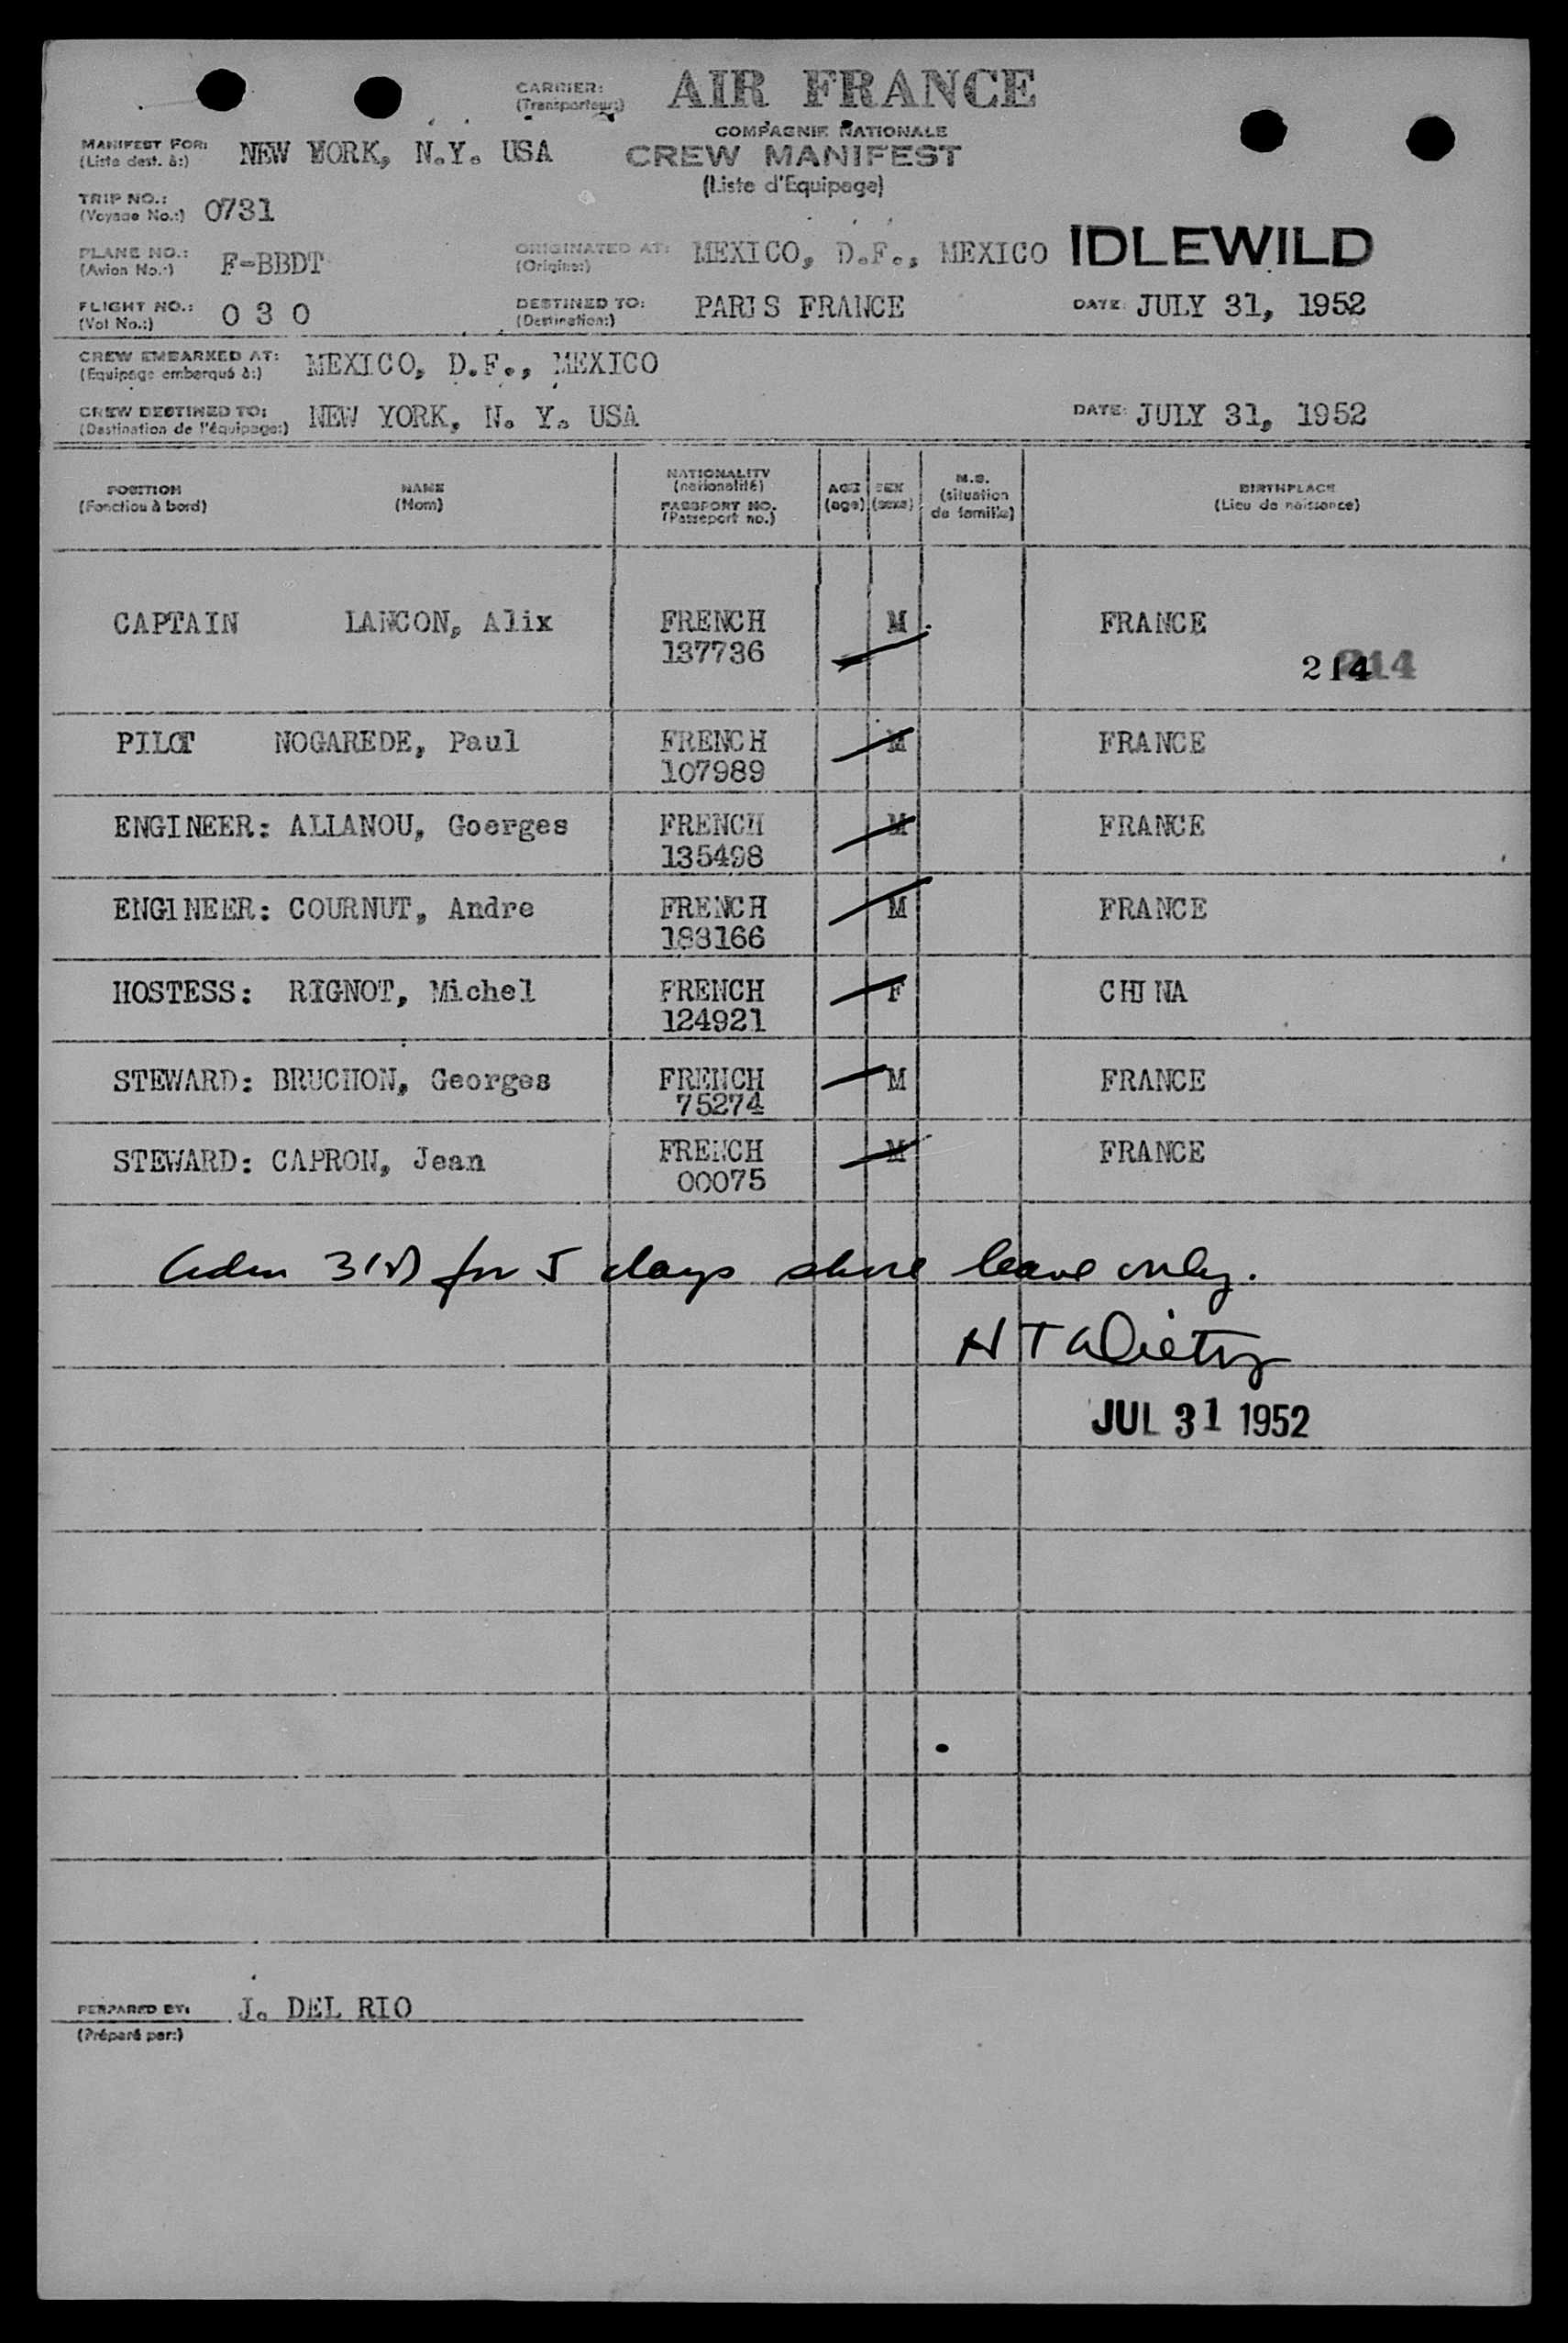 CARRIER: AIR FRANCE
(Transporteur:)
COMPAGNIE NATIONALE
MANIFEST FOR: NEW YORK, N.Y. USA CREW MANIFEST
(Liste dest. à:)
(Liste d'Equipage)
TRIP NO.: 0731
(Voyage No.:)
PLANE NO.: F-BBDT ORIGINATED AT: MEXICO, D.F., MEXICO IDLEWILD
(Avion No.:) (Origine:)
FLIGHT NO.: 0 3 0 DESTINED TO: PARIS FRANCE DATE: JULY 31, 1952
(Vol No.:) (Destination:)
CREW EMBARKED AT: MEXICO, D.F., MEXICO
(Equipage embarqué à:)
CREW DESTINED TO: NEW YORK, N. Y. USA DATE: JULY 31, 1952
(Destination de l'équipage:)
POSITION NAME NATIONALITY AGE SEX M.S. BIRTHPLACE
(Fonction à bord) (Nom) (nationalité) (age) (sexe) (situation de famille) (Lieu de naissance)
PASSPORT NO.
(Passeport no.)
CAPTAIN LANCON, Alix FRENCH M FRANCE
137736
214 214
PILOT NOGAREDE, Paul FRENCH M FRANCE
107989
ENGINEER: ALLANOU, Goerges FRENCH M FRANCE
135498
ENGINEER: COURNUT, Andre FRENCH M FRANCE
183166
HOSTESS: RIGNOT, Michel FRENCH F CHINA
124921
STEWARD: BRUCHON, Georges FRENCH M FRANCE
75274
STEWARD: CAPRON, Jean FRENCH M FRANCE
00075
for 5 days shore leave only.
JUL 31 1952
PERPARED BY: J. DEL RIO
(Préparé par:)